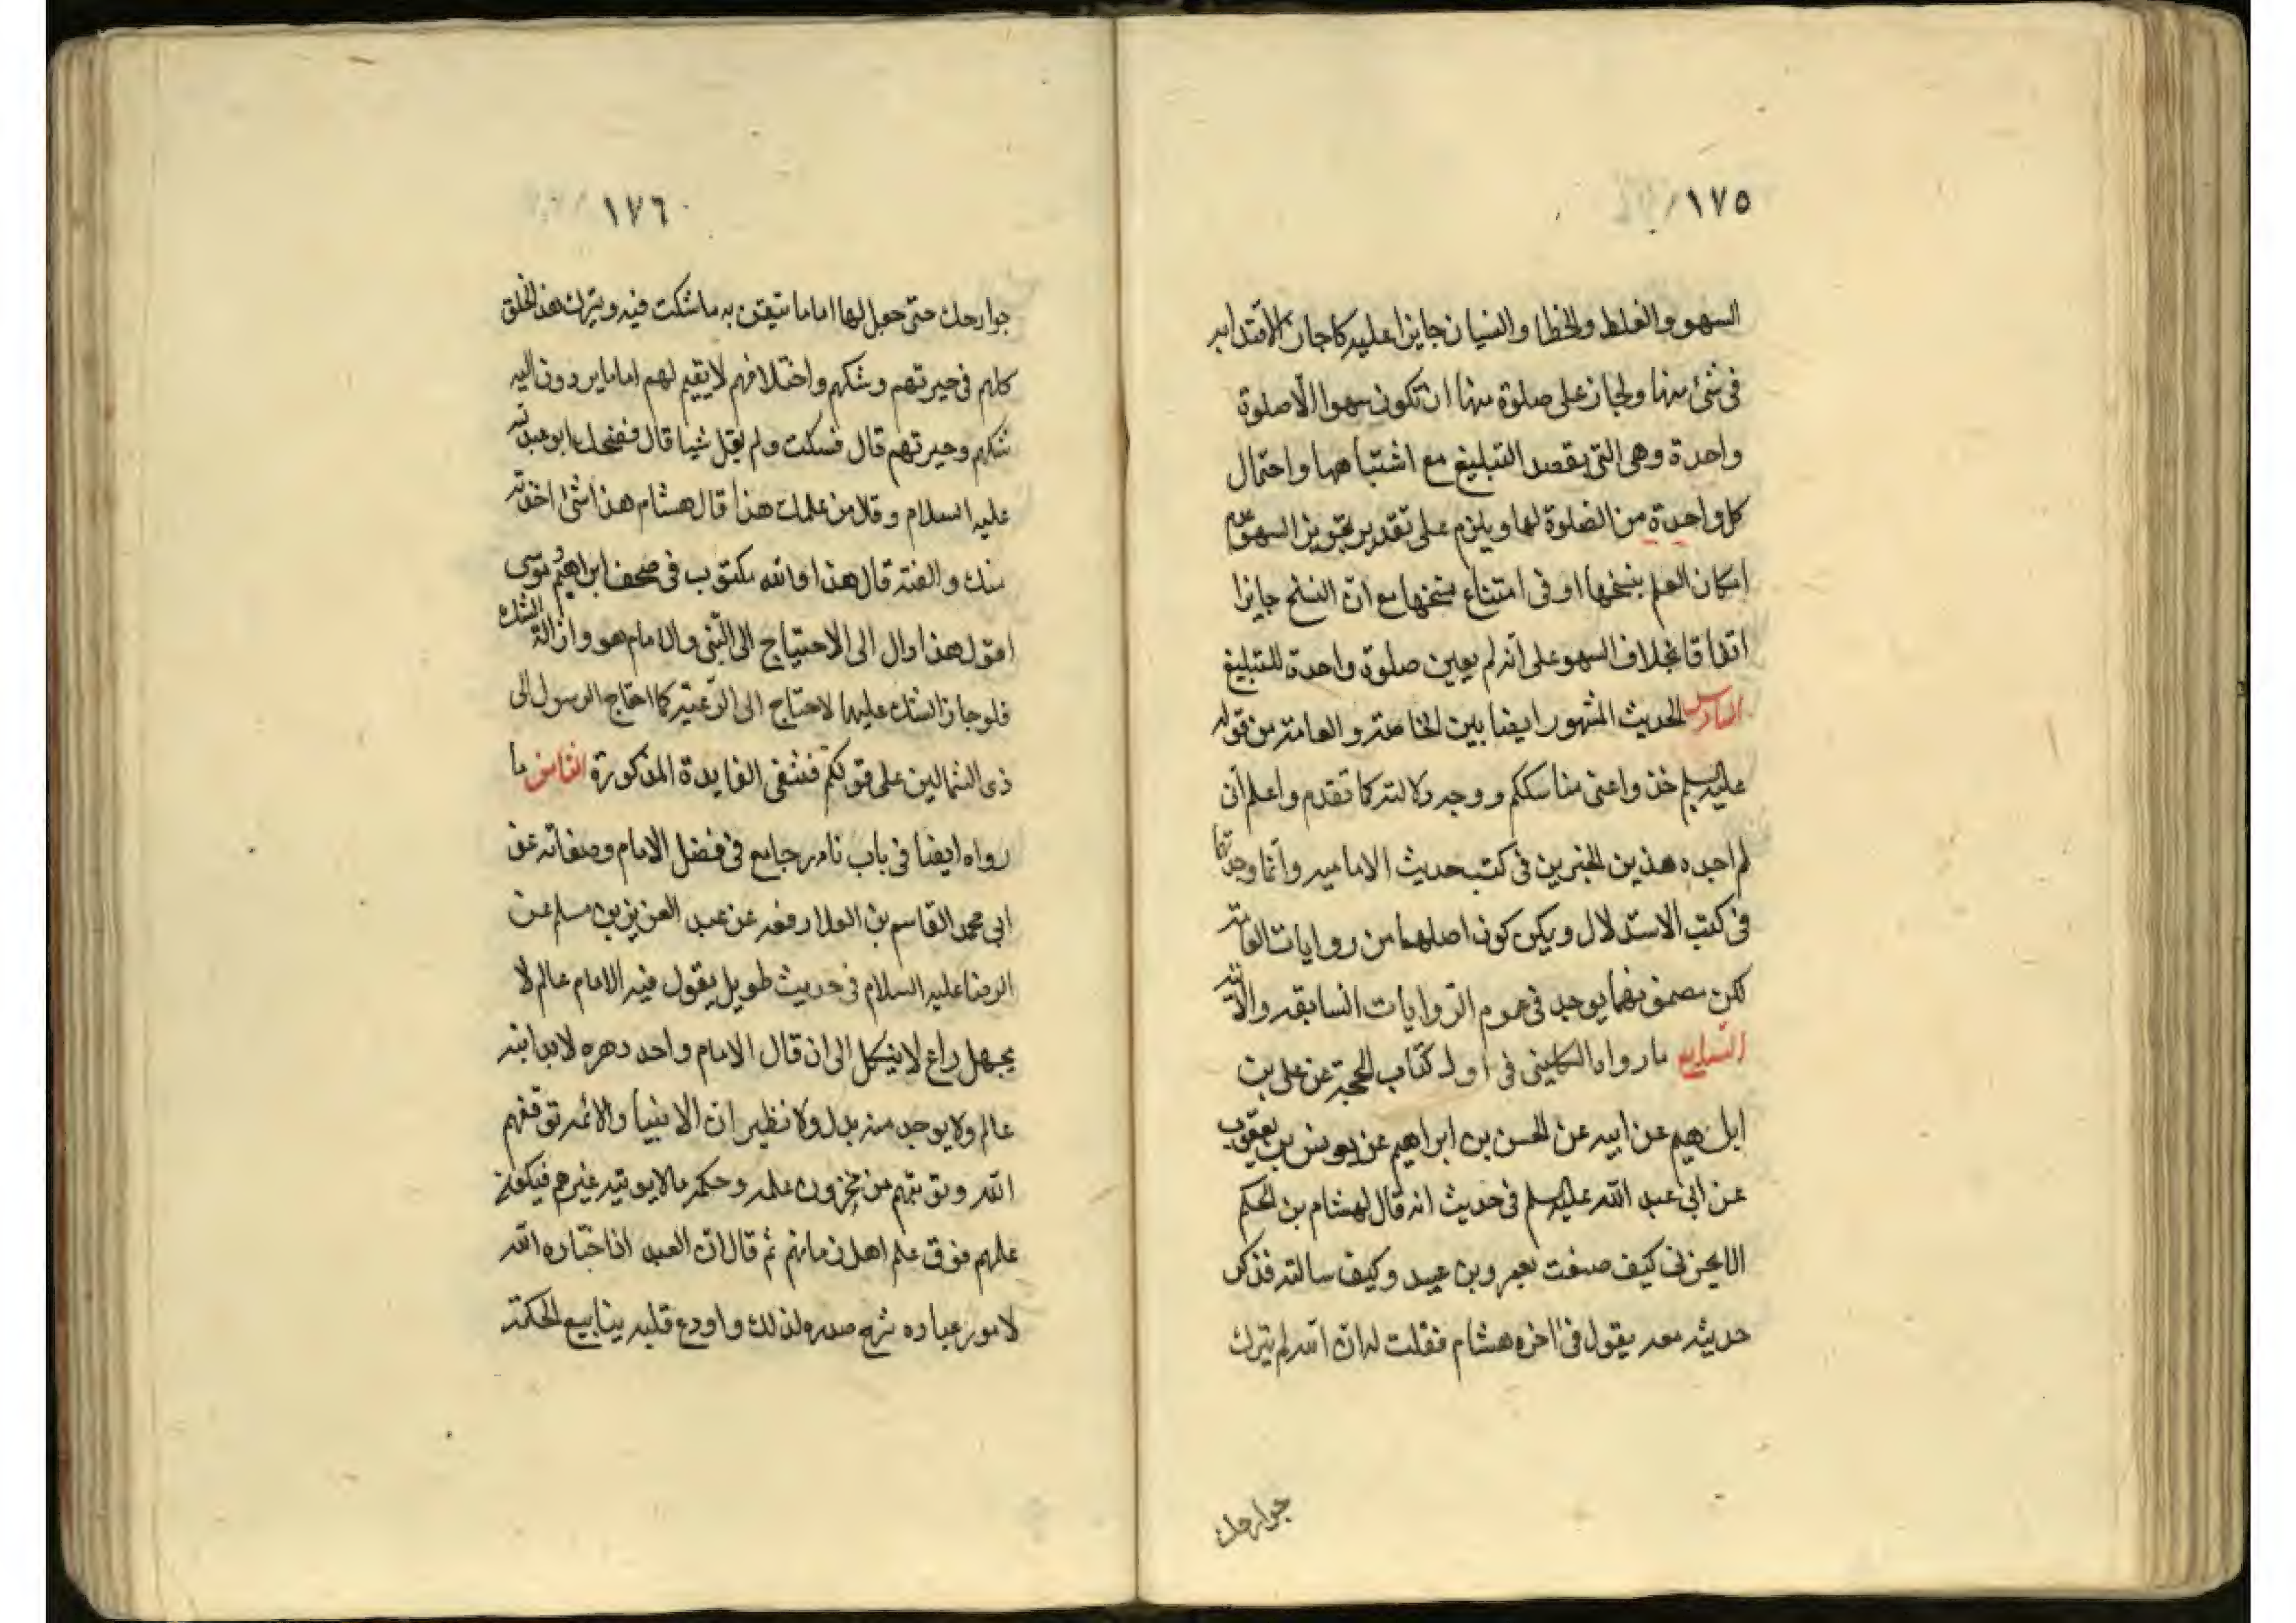 ١٧٥
السهو والغلط والخطا والنسيان جايزا عليه كما جاز الاقتدا به
فى شئ منها ولجاز على صلوة منها ان تكون سهوا الا صلوة
واحدة وهى التى يقصد التبليغ مع اشتباهها واحتمال
كل واحدة من الصلوة لها ويلزم على تقدير تجويز السهو عدم
امكان العلم بنسخها او فى امتناع نسخها مع ان النسخ جايز
اتفاقا بخلاف السهو على انه لم يعين صلوة واحدة للتبليغ
السادس الحديث المشهور ايضا بين الخاصة والعامة من قوله
عليه السلم خذوا عنى مناسككم ووجه دلالته كما تقدم واعلم انى
لم اجد هذين الخبرين فى كتب حديث الامامية وانما وجدتهما
فى كتب الاستدلال ويمكن كون اصلهما من روايات العامة
لكن مضمونهما يوجد فى عموم الروايات السابقة والآتية
السابع ما رواه الكلينى فى اول كتاب الحجة عن على بن
ابراهيم عن ابيه عن الحسن بن ابراهيم عن يونس بن يعقوب
عن ابى عبد الله عليه السلم فى حديث انه قال لهشام بن الحكم
الا تخبرنى كيف صنعت بعمرو بن عبيد وكيف سالته فذكر
حديثه معه يقول فى اخره هشام فقلت له ان الله لم يترك
جوارحك
١٧٦
جوارحك حتى جعل لها اماما تتيقن به ما شكت فيه ويترك هذا الخلق
كلهم فى حيرتهم وشكهم واختلافهم لا يقيم لهم اماما يردون اليه
شكهم وحيرتهم قال فسكت ولم يقل شيا قال فضحك ابو عبد الله
عليه السلام وقال من علمك هذا قال هشام هذا شئ اخذته
منك والفته قال هذا والله مكتوب فى صحف ابراهيم وموسى
اقول هذا دال الى الاحتياج الى النبى والامام هو وازالة الشك
فلو جاز الشك عليهما لاحتاج الى الرعية كما احتاج الرسول الى
ذى الشمالين على قولكم فتنتفى الفايدة المذكورة الثامن ما
رواه ايضا فى باب نادر جامع فى فضل الامام وصفاته عن
ابى محمد القاسم بن العلا رفعه عن عبد العزيز بن مسلم عن
الرضا عليه السلام فى حديث طويل يقول فيه الامام عالم لا
يجهل راع لا ينكل الى ان قال الامام واحد دهره لا يدانيه
عالم ولا يوجد منه بدل ولا نظير ان الانبيا والائمة توفقهم
الله ويؤتيهم من مخزون علمه وحكمه ما لا يؤتيه غيرهم فيكون
علمهم فوق علم اهل زمانهم ثم قال ان العبد اذا اختاره الله
لامور عباده شرح صدره لذلك واودع قلبه ينابيع الحكمة